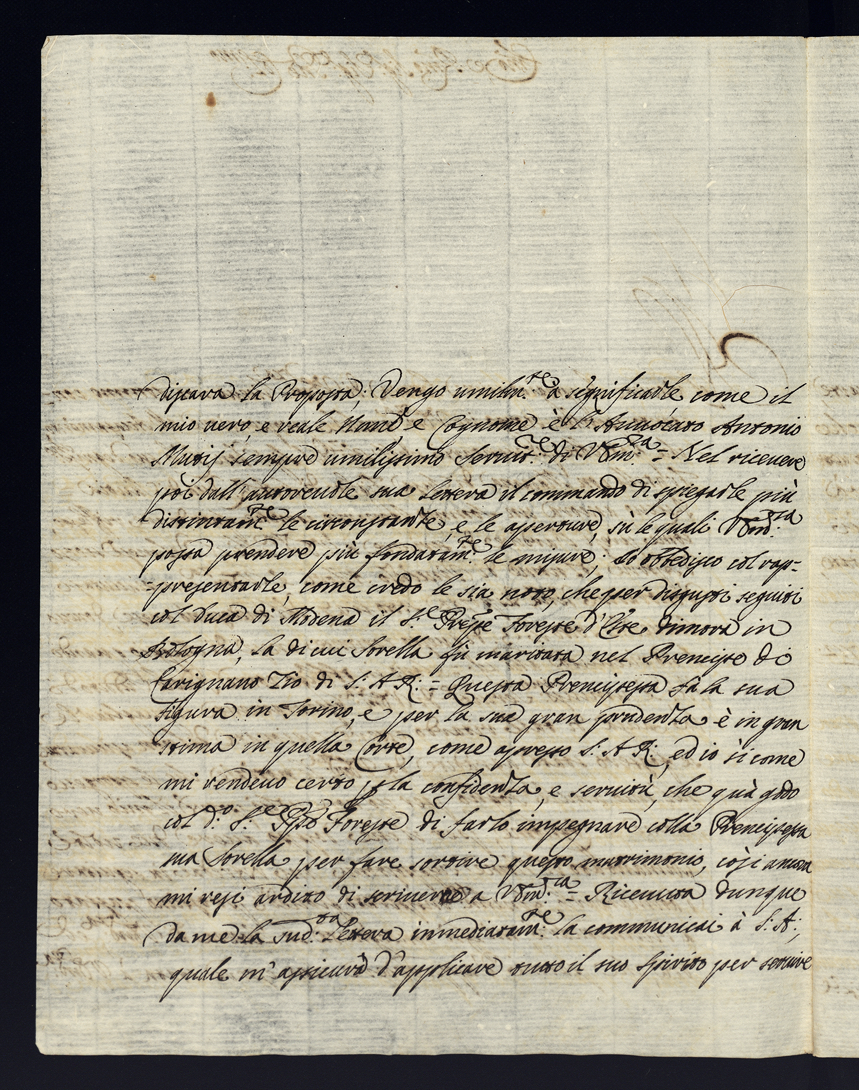 discara la Proposta; Vengo umilm.te a significarle come il
mio vero, e reale Nome e Cognome è l'Auuocato Antonio
Mutij sempre umilissimo Seruit.re di V.S.Ill.ma = Nel riceuere
poi dall'autoreuole sua Lettera il commando di spiegarle più
distintam.te le circonstanze, e le aperture, sù le quali V.S.Ill.ma
possa prendere più fondatam.te le misure; Io obbedisco col rap=
=presentarle, come credo le sia noto, che per disgusti seguiti
col Duca di Modena il S.r Prñpe Foresto d'Este dimora in
Bologna, la di cui Sorella fù maritata nel Prencipe di
Carignano Zio di S. A. R. = Questa Prencipessa fà la sua
figura in Torino, e per la sua gran prudenza è in gran
stima in quella Corte, come apresso S. A. R., ed io si come
mi rendeuo certo p la confidenza, e seruitù, che quà godo
col d.o S.r Foresto di farlo impegnare colla Prencipessa
sua Sorella per fare sortire questo matrimonio, così ancora
mi resi ardito di scriuerne a V.S.Ill.ma = Riceuuta dunque
da me la sud.ta Lettera immediatam.te la communicai à S. A:,
quale m'assicurò d'applicare tutto il suo Spirito per seruire